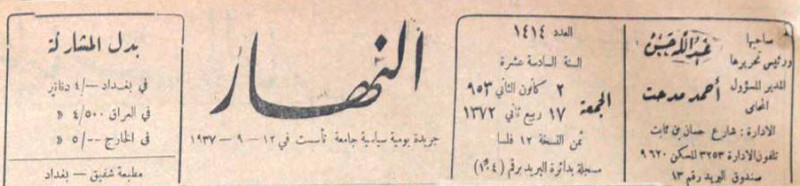 صاحبها
ورئيس تحريرها
عبد الله حسن
المدير المسؤول
المحامي
أحمد مدحت
الادارة : شارع حسان بن ثابت
تلفون الادارة ٣٢٥٣ المسكن ٩٦٢٠
صندوق البريد رقم ١٣
العدد ١٤١٤
السنة السادسة عشرة
الجمعة
٢ كانون الثاني ٩٥٣
١٧ ربيع ثاني ١٣٧٢
ثمن النسخة ١٢ فلسا
مسجلة بدائرة البريد برقم
النهار
جريدة يومية سياسية جامعة تأسست في ١٢ – ٩ – ١٩٣٧
بدل المشاركة
في بغداد ــ/٤ دنانير
في العراق ٤/٥٠٠ »
في الخارج ــ/٥ »
مطبعة شفيق – بغداد